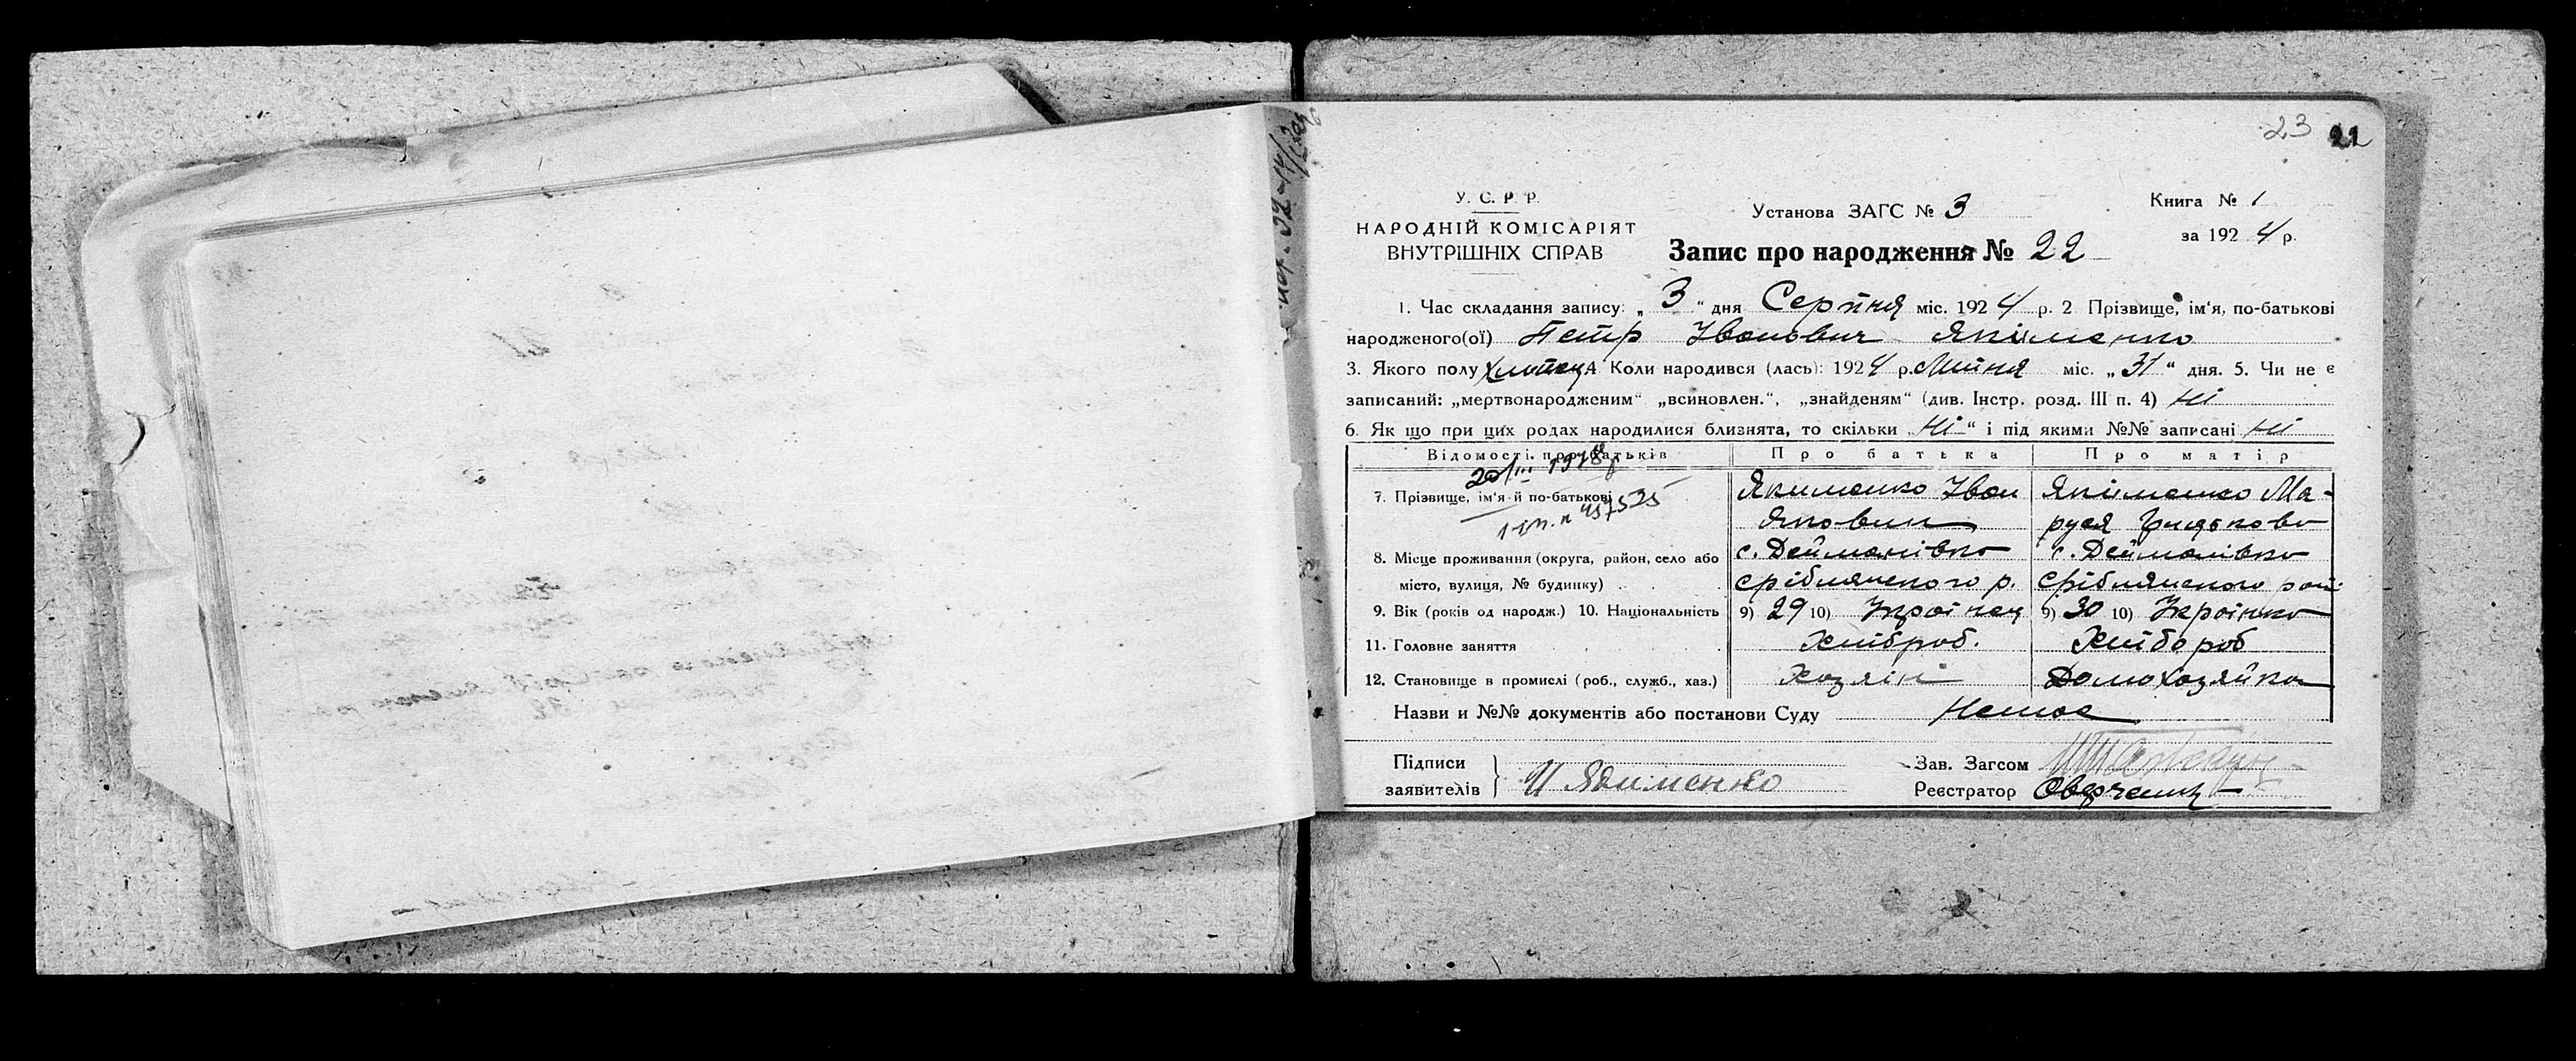 23 22
У. С. Р. Р.
НАРОДНІЙ КОМІСАРІЯТ
ВНУТРІШНІХ СПРАВ
Установа ЗАГС № 3
Книга № 1
за 1924 р.
Запис про народження № 22
1. Час складання запису: „3“ дня Серпня міс. 1924 р. 2 Прізвище, ім‘я, по-батькові
народженого(ої) Петр Иванович Якіменко
3. Якого полу хлопец 4 Коли народився (лась): 1924 р. Липня міс. „31“ дня. 5. Чи не є
записаний: „мертвонародженим“ „всиновлен.“, „знайденям“ (див. Інстр. розд. III п. 4) Ні
6. Як що при цих родах народилися близнята, то скільки „Ні“ і під якими №№ записані Ні
Відомості про батьків Про батька Про матір
7. Прізвище, ім‘я й по-батькові Якименко Иван Якіменко Ма-
Якович руся
8. Місце проживання (округа, район, село або с. Дейманівка с. Дейманівка
місто, вулиця, № будинку) Срібнянского р. Срібнянского рай.
9. Вік (років од народж.) 10. Національність 9) 29 10) Українец 9) 30 10) Українка
11. Головне заняття Хлібороб. Хлібороб
12. Становище в промислі (роб., служб., хаз.) Хозяін Домохозяйка
Назви и №№ документів або постанови Суду Немає
Підписи
заявителів И Якименко
Зав. Загсом
Реєстратор